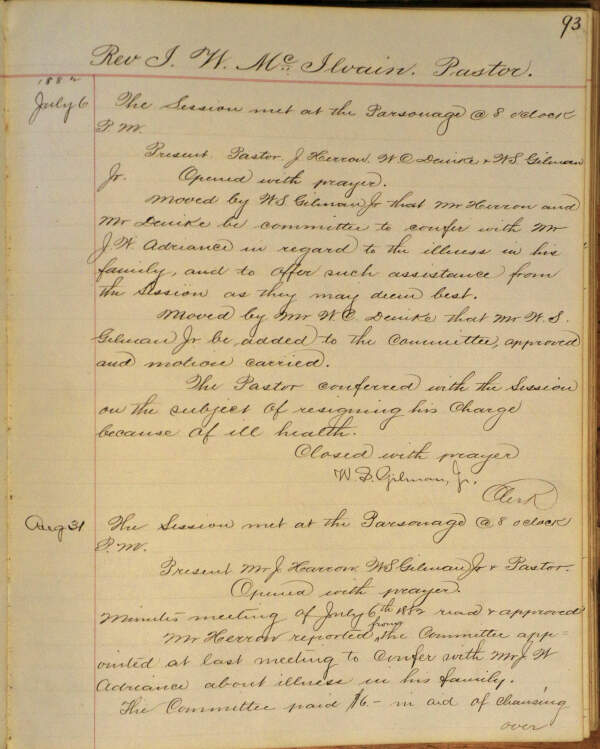 93
Rev J. W. McIlvain. Pastor.
1882
July 6 The Session met at the Parsonage @ 8 oclock
P.M.
Present Pastor, J Herron, W C Denike & WS Gilman
Jr. Opened with prayer.
Moved by WS Gilman Jr that Mr Herron and
Mr Denike be committee to confer with Mr
J. W. Adriance in regard to the illness in his
family, and to offer such assistance from
the Session as they may deem best.
Moved by Mr W C. Denike that Mr W. S.
Gilman Jr be added to the Committee, approved
and motion carried.
The Pastor conferred with the Session
on the subject of resigning his Charge
because of ill health.
Closed with prayer
W. S. Gilman, Jr.
Clerk
Aug 31 The Session met at the Parsonage @ 8 oclock
P.M.
Present Mr J. Harrow, WS Gilman Jr & Pastor.
Opened with prayer.
Minutes meeting of July 6th 1882 read & approved
Mr Herron reported from the Committee app=
ointed at last meeting to confer with Mr J W
Adriance about illness in his family.
The Committee paid $6.- in aid of cleansing
over